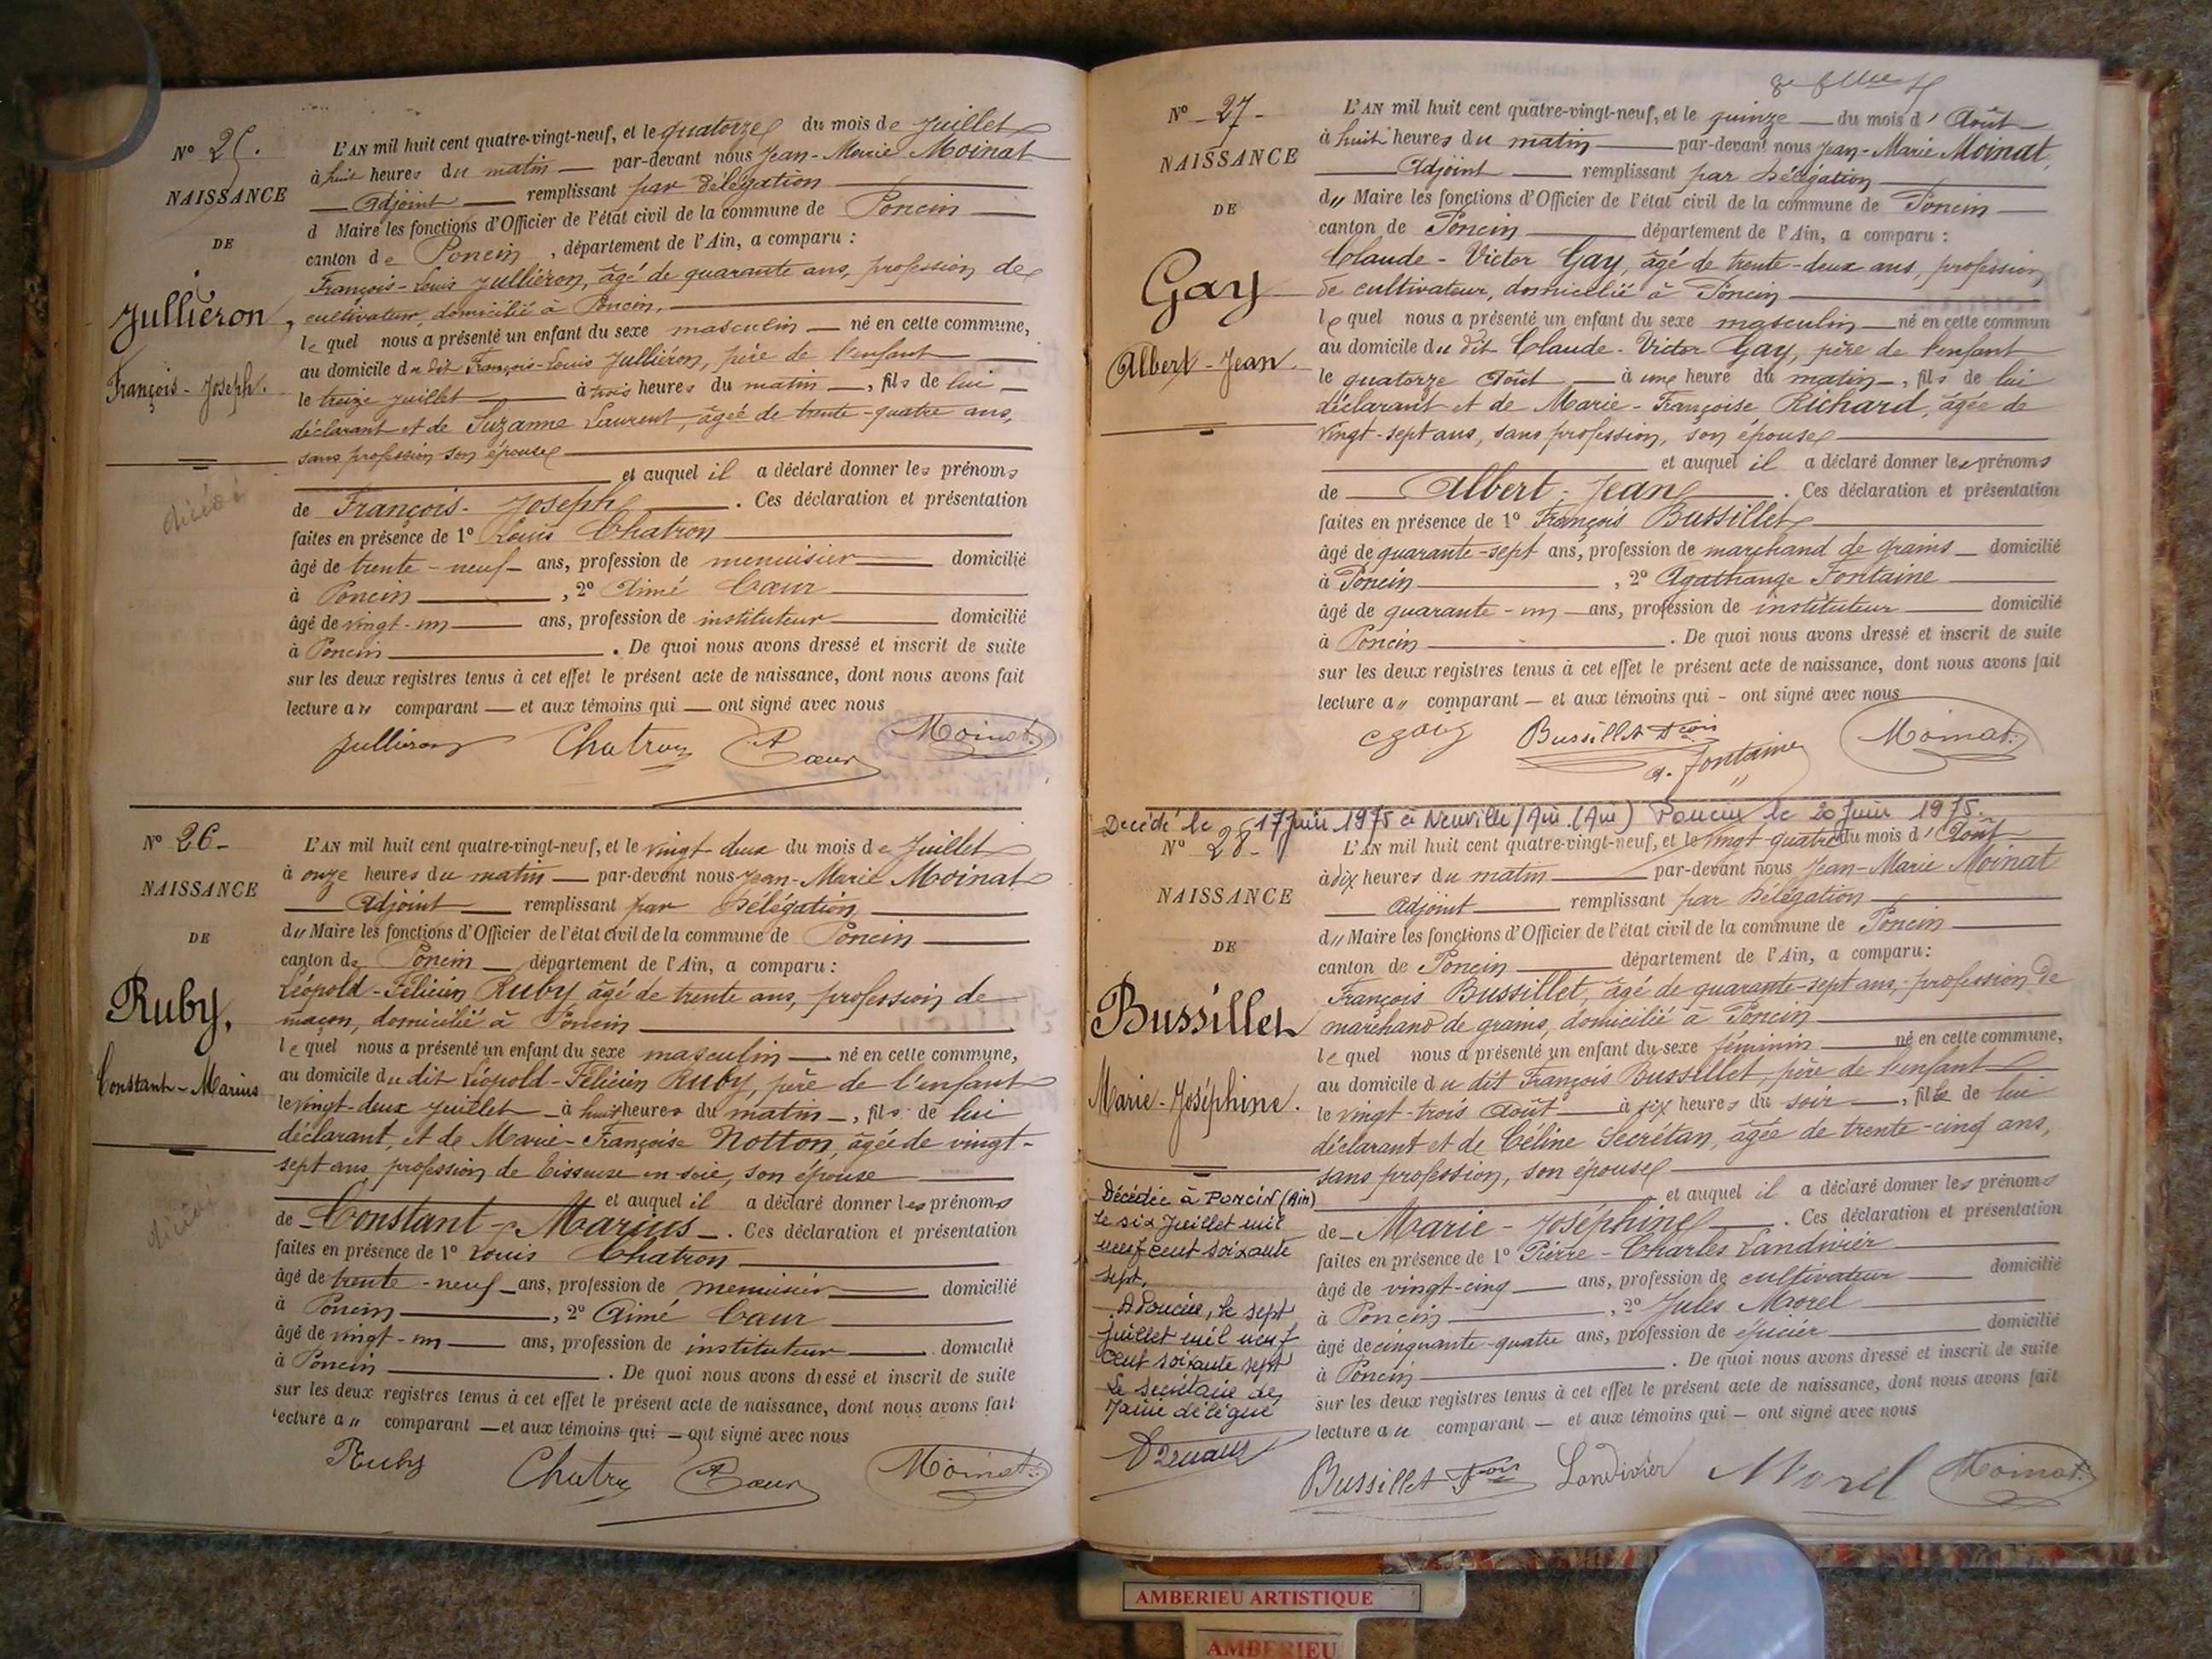 N° 25.
NAISSANCE
DE
Jullieron,
François-Joseph.
décédé
L'AN mil huit cent quatre-vingt-neuf, et le quatorze du mois de Juillet
à huit heures du matin par-devant nous Jean-Marie Moinat
Adjoint remplissant par Délégation
d Maire les fonctions d'Officier de l'état civil de la commune de Poncin
canton de Poncin, département de l'Ain, a comparu :
François-Louis Julliéron, âgé de quarante ans, profession de
cultivateur, domicilié à Poncin,
lequel nous a présenté un enfant du sexe masculin né en cette commune,
au domicile du dit François-Louis Julliéron, père de l'enfant
le treize juillet à trois heures du matin, fils de lui
déclarant et de Suzanne Laurent, âgée de trente-quatre ans,
sans profession son épouse
et auquel il a déclaré donner les prénoms
de François-Joseph. Ces déclaration et présentation
faites en présence de 1° Louis Chatron
âgé de trente-neuf ans, profession de menuisier domicilié
à Poncin, 2° Aimé Cœur
âgé de vingt-un ans, profession de instituteur domicilié
à Poncin. De quoi nous avons dressé et inscrit de suite
sur les deux registres tenus à cet effet le présent acte de naissance, dont nous avons fait
lecture au comparant et aux témoins qui ont signé avec nous
Jullieron Chatron A Cœur Moinat
N° 26
NAISSANCE
DE
Ruby,
Constant-Marius
décédé
L'AN mil huit cent quatre-vingt-neuf, et le vingt deux du mois de Juillet
à onze heures du matin par-devant nous Jean-Marie Moinat
Adjoint remplissant par Délégation
du Maire les fonctions d'Officier de l'état civil de la commune de Poncin
canton de Poncin département de l'Ain, a comparu :
Léopold-Félicien Ruby, âgé de trente ans, profession de
maçon, domicilié à Poncin
lequel nous a présenté un enfant du sexe masculin né en cette commune,
au domicile du dit Léopold-Félicien Ruby, père de l'enfant
le vingt-deux Juillet à huit heures du matin, fils de lui
déclarant, et de Marie-Françoise Notton, âgée de vingt-
sept ans, profession de Tisseuse en soie, son épouse
et auquel il a déclaré donner les prénoms
de Constant-Marius. Ces déclaration et présentation
faites en présence de 1° Louis Chatron
âgé de trente-neuf ans, profession de menuisier domicilié
à Poncin, 2° Aimé Cœur
âgé de vingt-un ans, profession de instituteur domicilié
à Poncin. De quoi nous avons dressé et inscrit de suite
sur les deux registres tenus à cet effet le présent acte de naissance, dont nous avons fait
lecture au comparant et aux témoins qui ont signé avec nous
Ruby Chatron A Cœur Moinat
N° 27
NAISSANCE
DE
Gay
Albert-Jean.
L'AN mil huit cent quatre-vingt-neuf, et le quinze du mois d'Août
à huit heures du matin par-devant nous Jean-Marie Moinat
Adjoint remplissant par Délégation
du Maire les fonctions d'Officier de l'état civil de la commune de Poncin
canton de Poncin département de l'Ain, a comparu :
Claude-Victor Gay, âgé de trente-deux ans, profession
de cultivateur, domicilié à Poncin
lequel nous a présenté un enfant du sexe masculin né en cette commun
au domicile du dit Claude-Victor Gay, père de l'enfant
le quatorze Août à une heure du matin, fils de lui
déclarant et de Marie-Françoise Richard, âgée de
vingt-sept ans, sans profession, son épouse
et auquel il a déclaré donner les prénoms
de Albert-Jean. Ces déclaration et présentation
faites en présence de 1° François Bussillet
âgé de quarante-sept ans, profession de marchand de grains domicilié
à Poncin, 2° Agathange Fontaine
âgé de quarante-un ans, profession de instituteur domicilié
à Poncin. De quoi nous avons dressé et inscrit de suite
sur les deux registres tenus à cet effet le présent acte de naissance, dont nous avons fait
lecture au comparant et aux témoins qui ont signé avec nous
Bussillet Fçois A. Fontaine Moinat
Décédé le 17 Juin 1975 à Neuville/Ain (Ain) Poncin le 20 Juin 1975.
N° 28
NAISSANCE
DE
Bussillet
Marie-Joséphine.
Décédée à PONCIN (Ain)
le six Juillet mil
neuf cent soixante
sept.
A Poncin, le sept
juillet mil neuf
cent soixante sept
Le secrétaire de
Mairie délégué
L'AN mil huit cent quatre-vingt-neuf, et le vingt-quatre du mois d'Août
à dix heures du matin par-devant nous Jean-Marie Moinat
Adjoint remplissant par Délégation
du Maire les fonctions d'Officier de l'état civil de la commune de Poncin
canton de Poncin département de l'Ain, a comparu :
François Bussillet, âgé de quarante-sept ans, profession de
marchand de grains, domicilié à Poncin
lequel nous a présenté un enfant du sexe féminin né en cette commune,
au domicile du dit François Bussillet, père de l'enfant
le vingt-trois Août à six heures du soir, fille de lui
déclarant et de Céline Secrétan, âgée de trente-cinq ans,
sans profession, son épouse
et auquel il a déclaré donner les prénoms
de Marie-Joséphine. Ces déclaration et présentation
faites en présence de 1° Pierre-Charles Landivier
âgé de vingt-cinq ans, profession de cultivateur domicilié
à Poncin, 2° Jules Morel
âgé de cinquante-quatre ans, profession de épicier domicilié
à Poncin. De quoi nous avons dressé et inscrit de suite
sur les deux registres tenus à cet effet le présent acte de naissance, dont nous avons fait
lecture au comparant et aux témoins qui ont signé avec nous
Bussillet Fçois Landivier Morel Moinat
AMBERIEU ARTISTIQUE
AMBERIEU